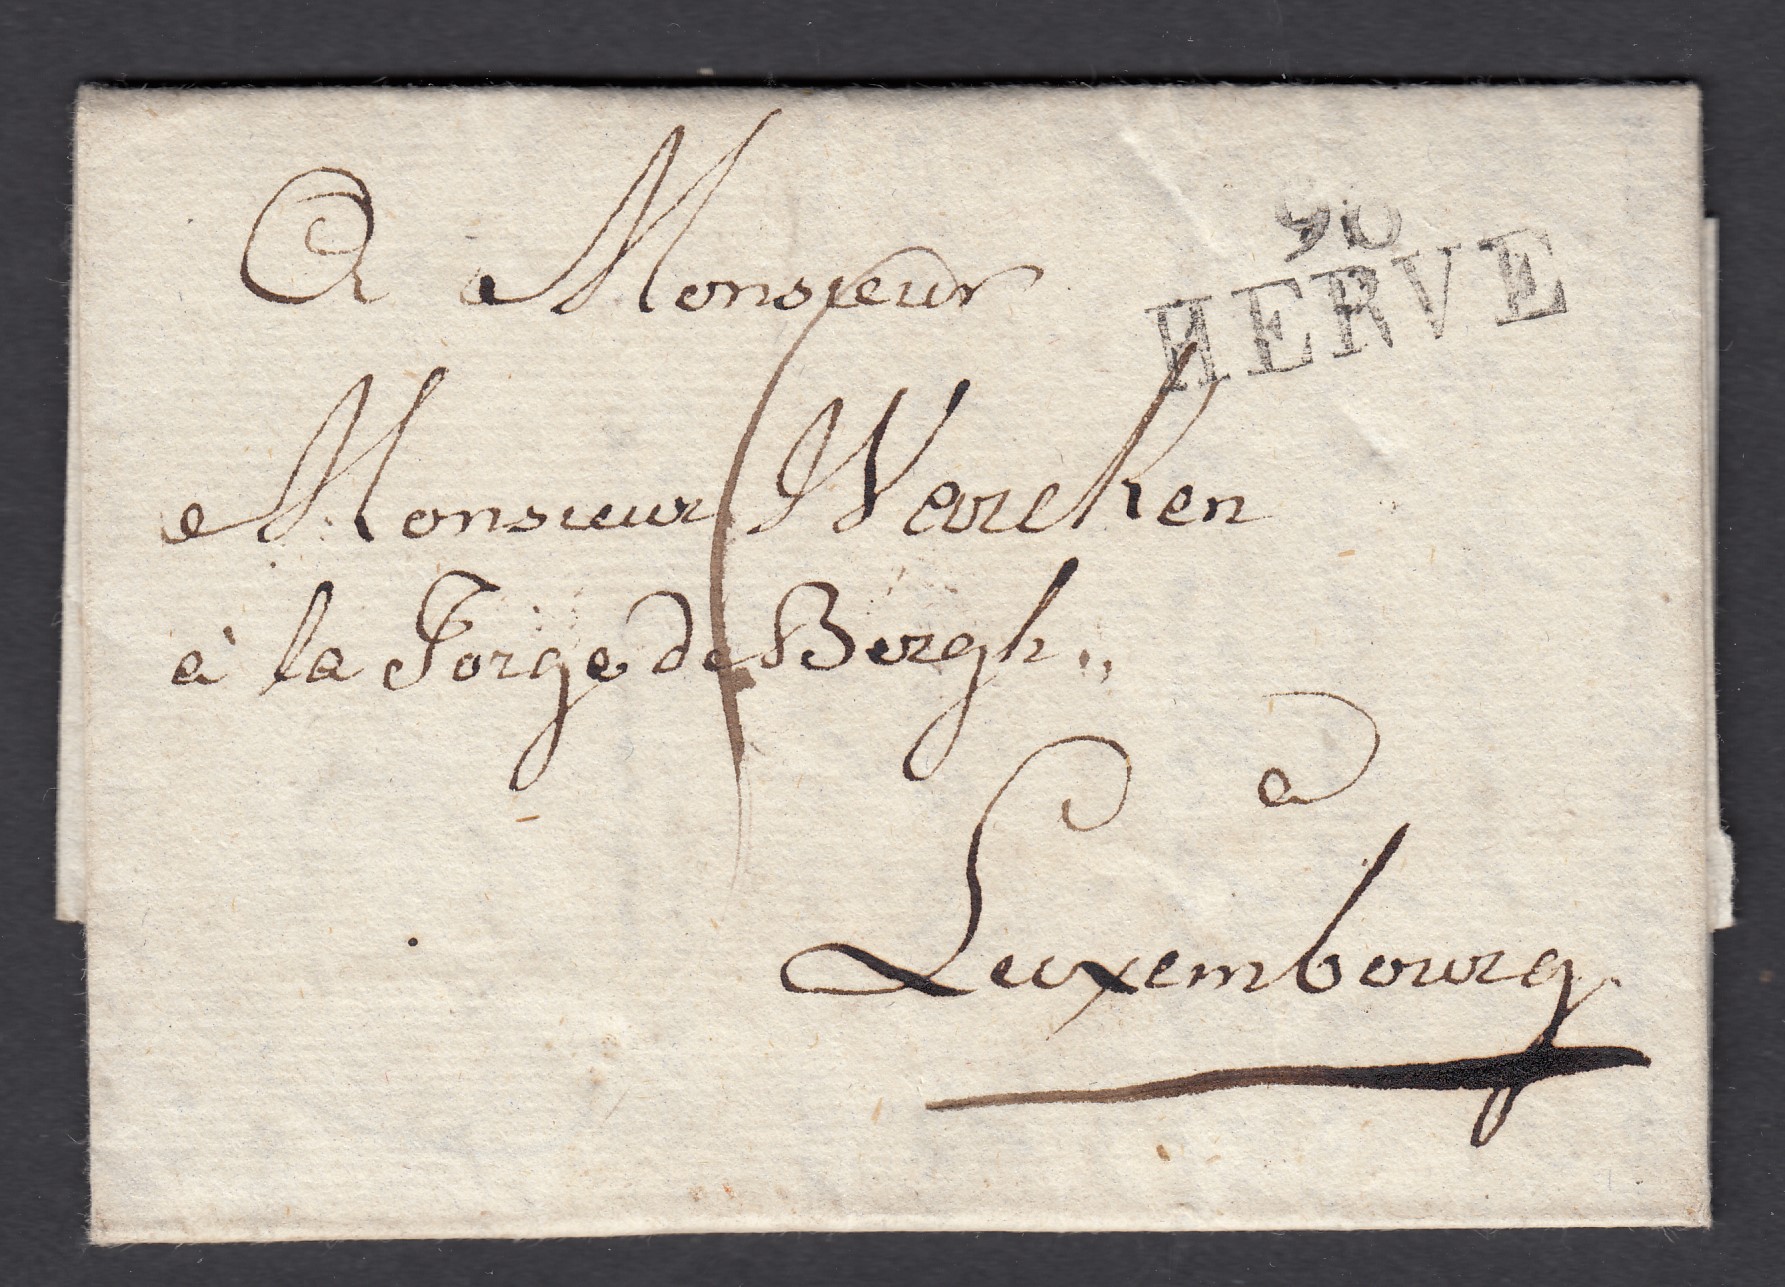 A Monsieur
96
HERVE
Monsieur Wercken
à la Forge de Bergh
à
Luxembourg